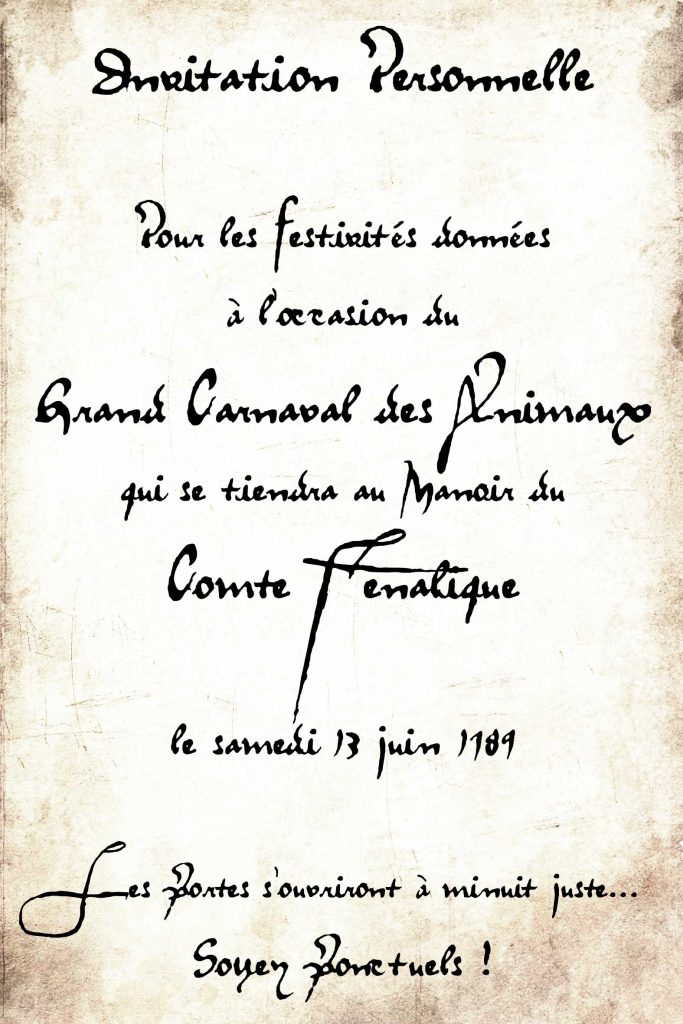 Invitation Personnelle
Pour les festivités données
à l'occasion du
Grand Carnaval des Animaux
qui se tiendra au Manoir du
Comte Fenalique
le samedi 13 juin 1789
Les Portes s'ouvriront à minuit juste...
Soyez Ponctuels !